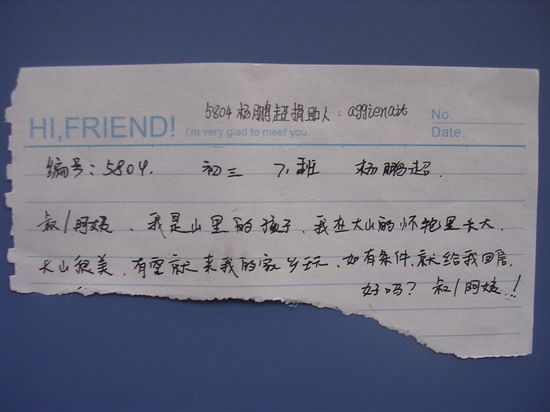 5804 杨鹏超 捐助人：aggienait
No.
HI,FRIEND! I'm very glad to meet you.
Date.
编号：5804. 初三 7.班 杨鹏超.
叔/阿姨、我是山里的孩子、我在大山的怀抱里长大、
大山很美、有空就来我的家乡玩、如有条件、就给我回信
好吗？ 叔/阿姨.！